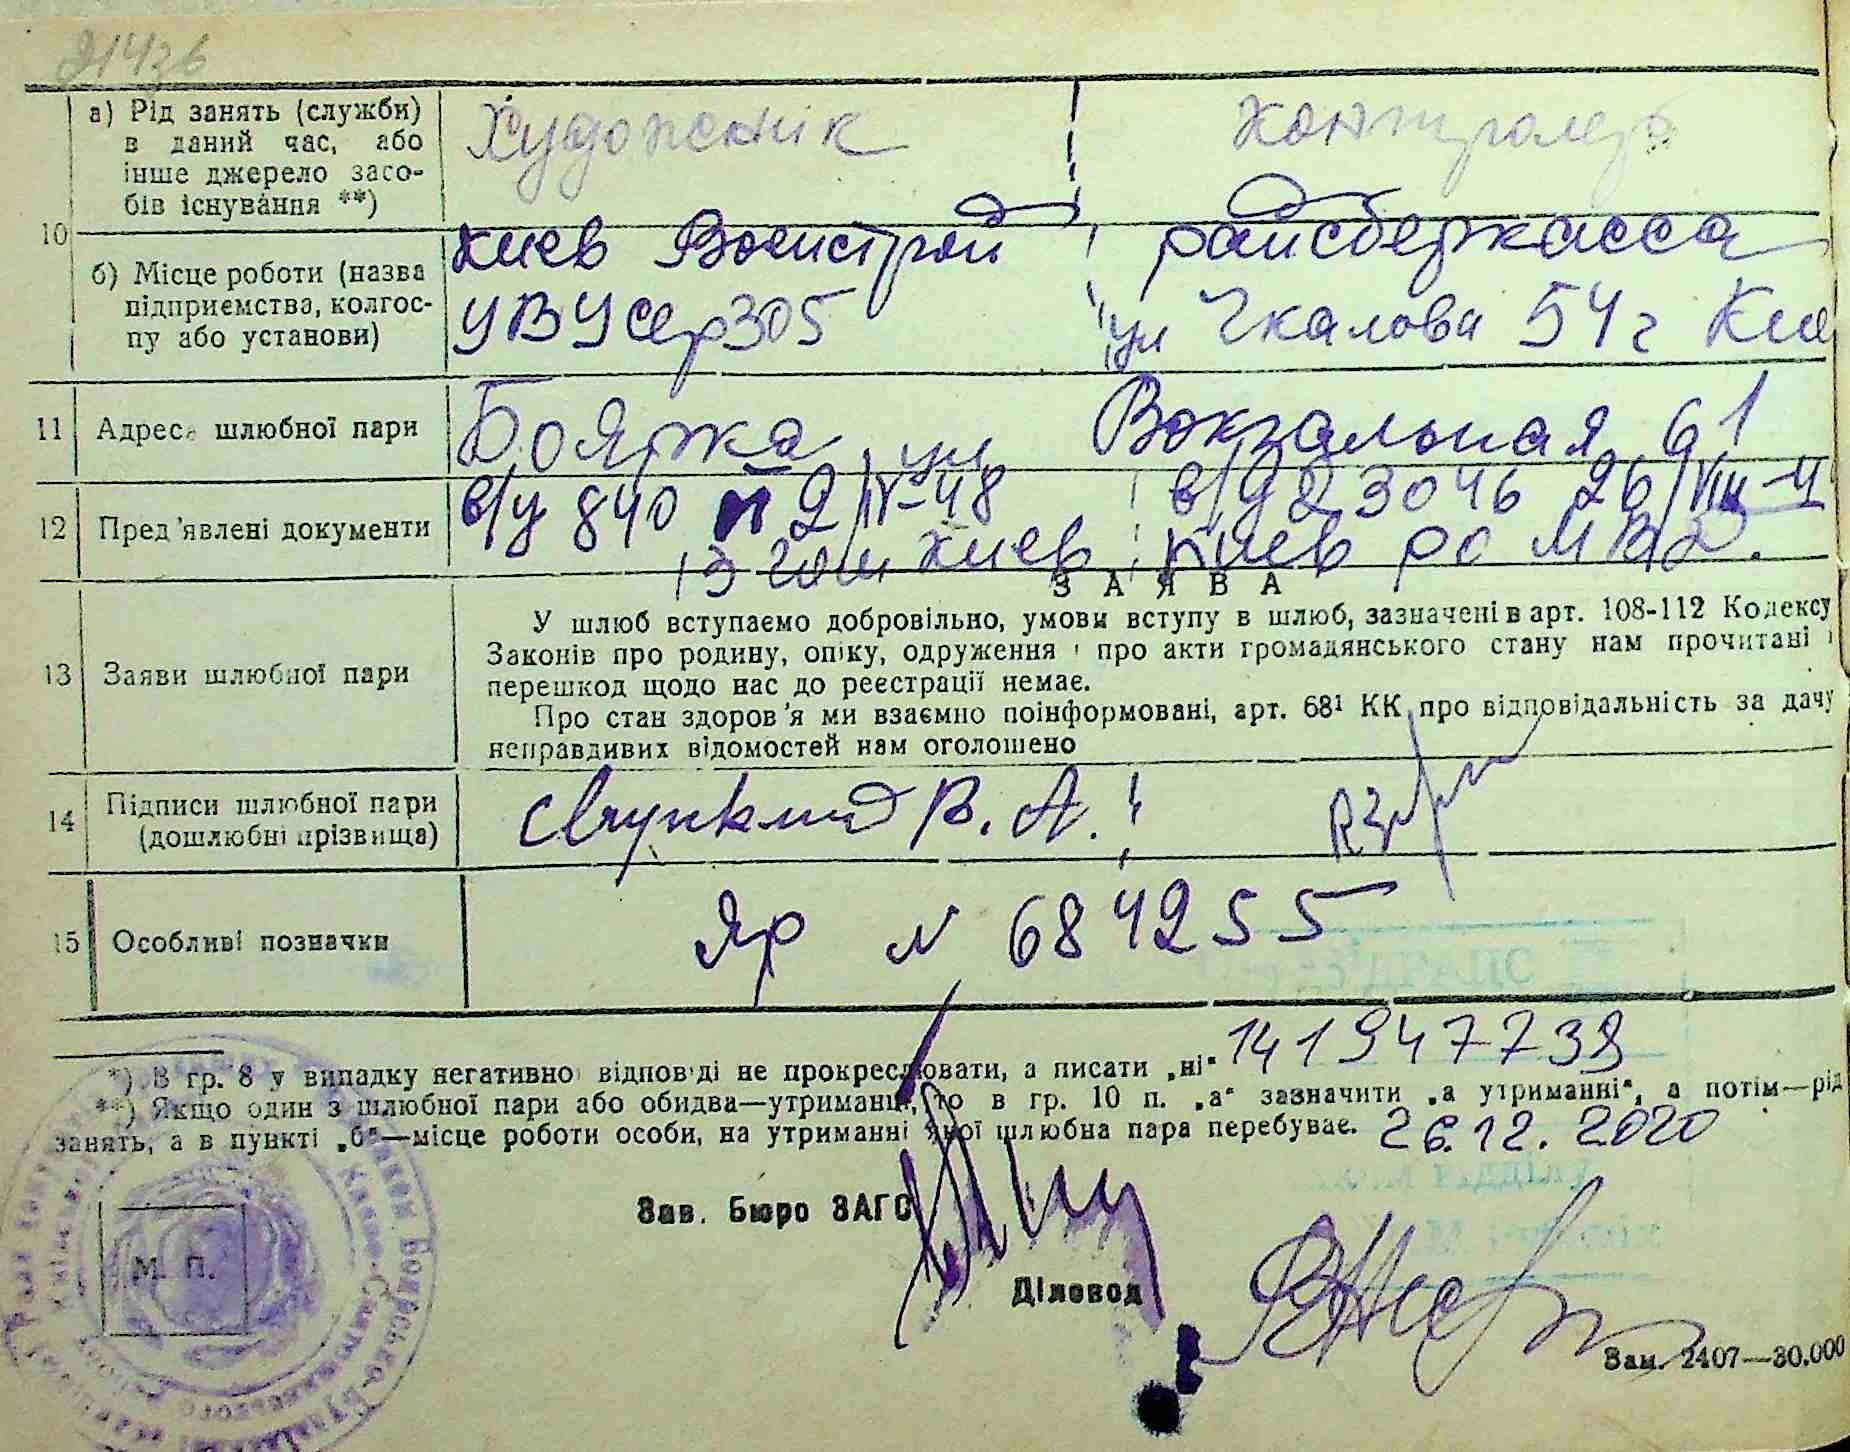 а) Рід занять (служби) в даний час, або інше джерело засобів існування **)
Художнік
Контролер
10
б) Місце роботи (назва підприємства, колгоспу або установи)
Киев Военстрой
УВУ Сер 305
райсберкасса
ул Чкалова 54г Кие
11 Адреса шлюбної пари
Боярка ул Вокзальная 61
12 Пред'явлені документи
в/у 840 2/IV-48
Киев
23046 26/VIII-41
Киев РО МВД.
ЗАЯВА
13 Заяви шлюбної пари
У шлюб вступаємо добровільно, умови вступу в шлюб, зазначені в арт. 108-112 Кодексу
Законів про родину, опіку, одруження і про акти громадянського стану нам прочитані і
перешкод щодо нас до реєстрації немає.
Про стан здоров'я ми взаємно поінформовані, арт. 68¹ КК про відповідальність за дачу
неправдивих відомостей нам оголошено
14 Підписи шлюбної пари
(дошлюбні прізвища)
В. А.
15 Особливі позначки
Яр N 684255
*) В гр. 8 у випадку негативної відповіді не прокреслювати, а писати „ні“ 141947739
**) Якщо один з шлюбної пари або обидва—утриманці, то в гр. 10 п. „а“ зазначити „а утриманні“, а потім—рід
занять, а в пункті „б“—місце роботи особи, на утриманні якої шлюбна пара перебуває. 26.12.2020
Зав. Бюро ЗАГС
М. П.
Діловод
Зам. 2407—30.000